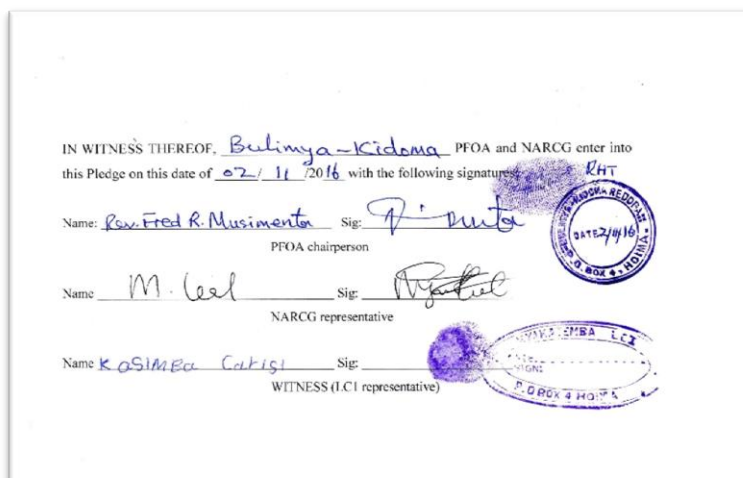 IN WITNESS THEREOF, Bulimya-Kidoma PFOA and NARCG enter into
this Pledge on this date of 02/ 11 /2016 with the following signatures
RHT
Name: Rev. Fred R. Musimenta Sig:
PFOA chairperson
DATE 2/11/16
P.O. BOX 4, HOIMA.
Name M. Sig:
NARCG representative
Name KASIMBA Sig:
WITNESS (LC1 representative)
LCI
P.O BOX 4 HOIMA